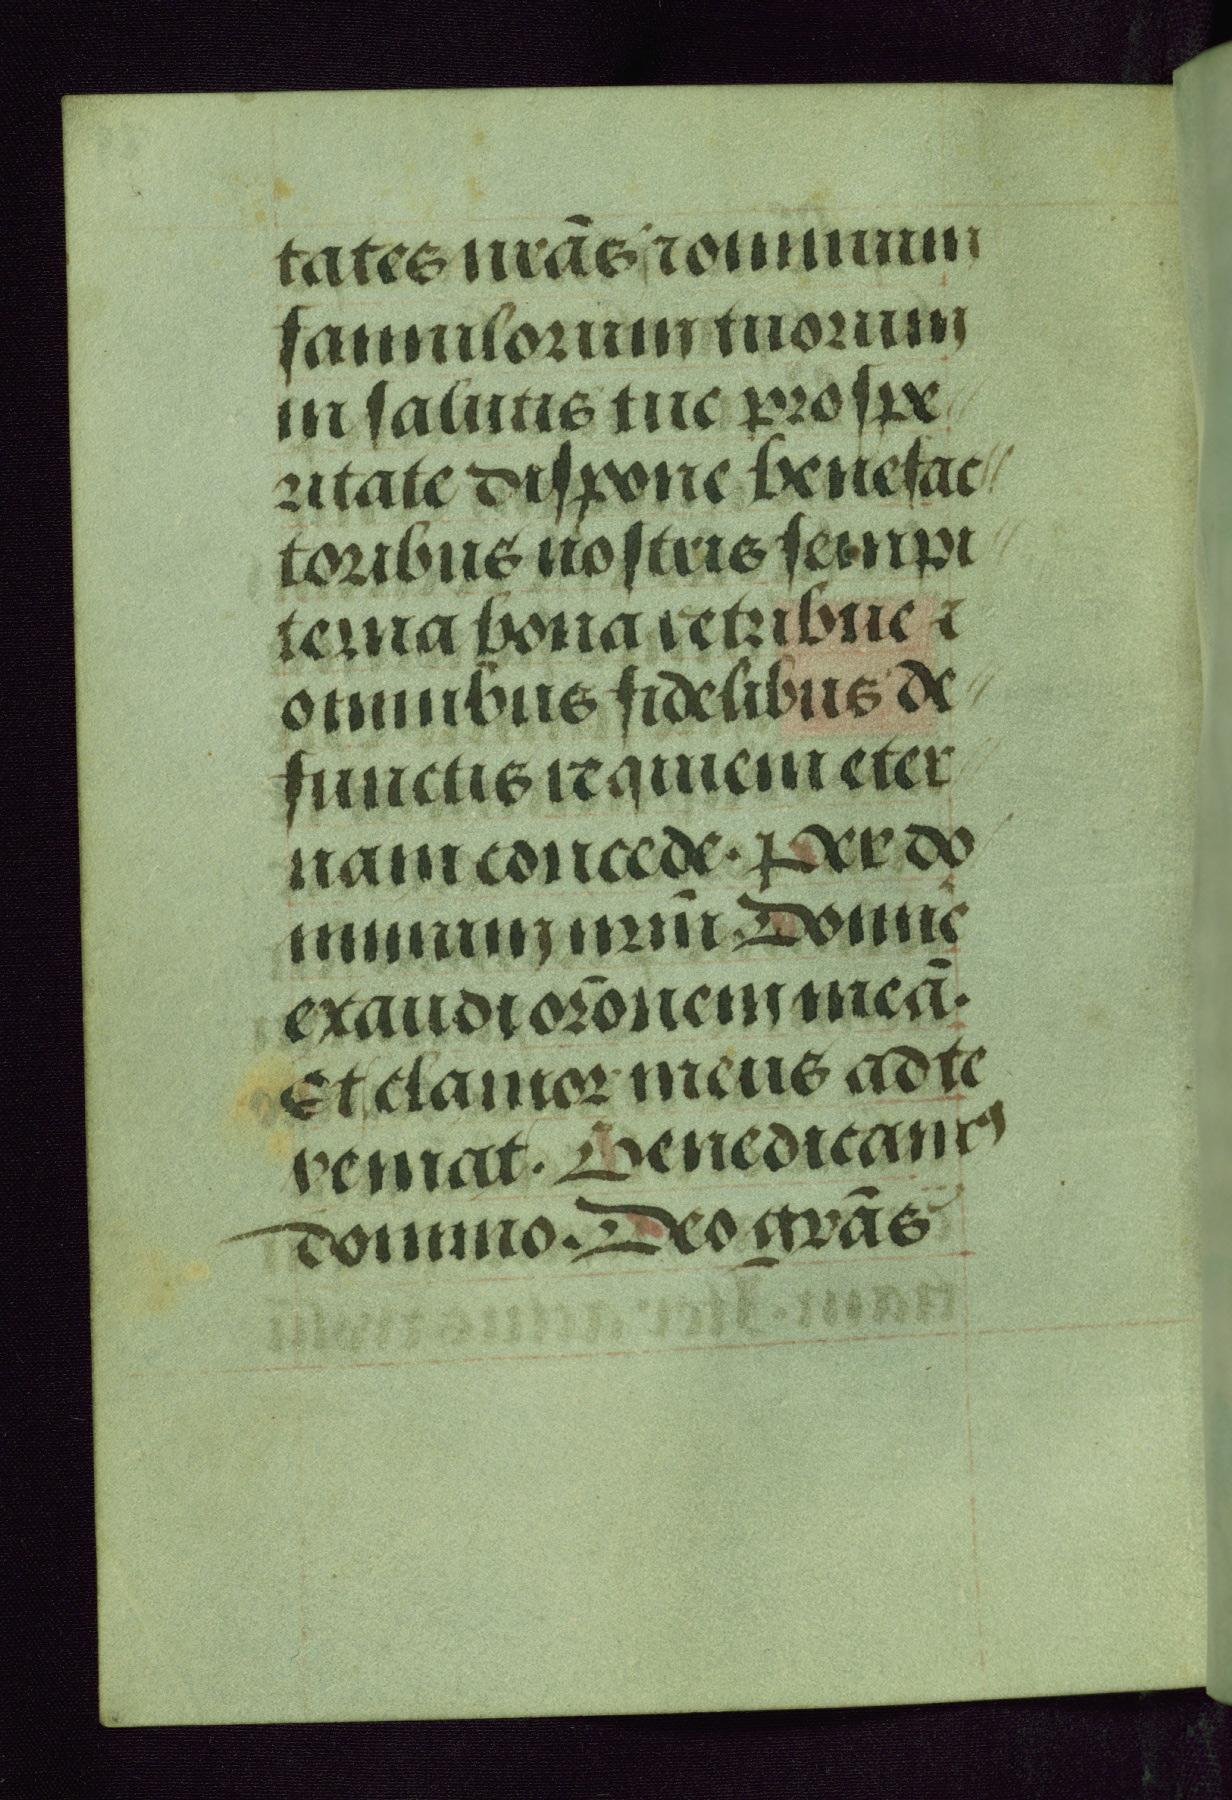 tates nrās ⁊ omnium
famulorum tuorum
in salutis tue prospe//
ritate dispone benefac//
toribus nostris sempi//
terna bona retribue ⁊
omnibus fidelibus de//
functis requiem eter//
nam concede. Per do/
minum nrm̄ Domiē
exaudi orōnem meā.
Et clamor meus ad te
veniat. Benedicamꝰ
domino. Deo grās